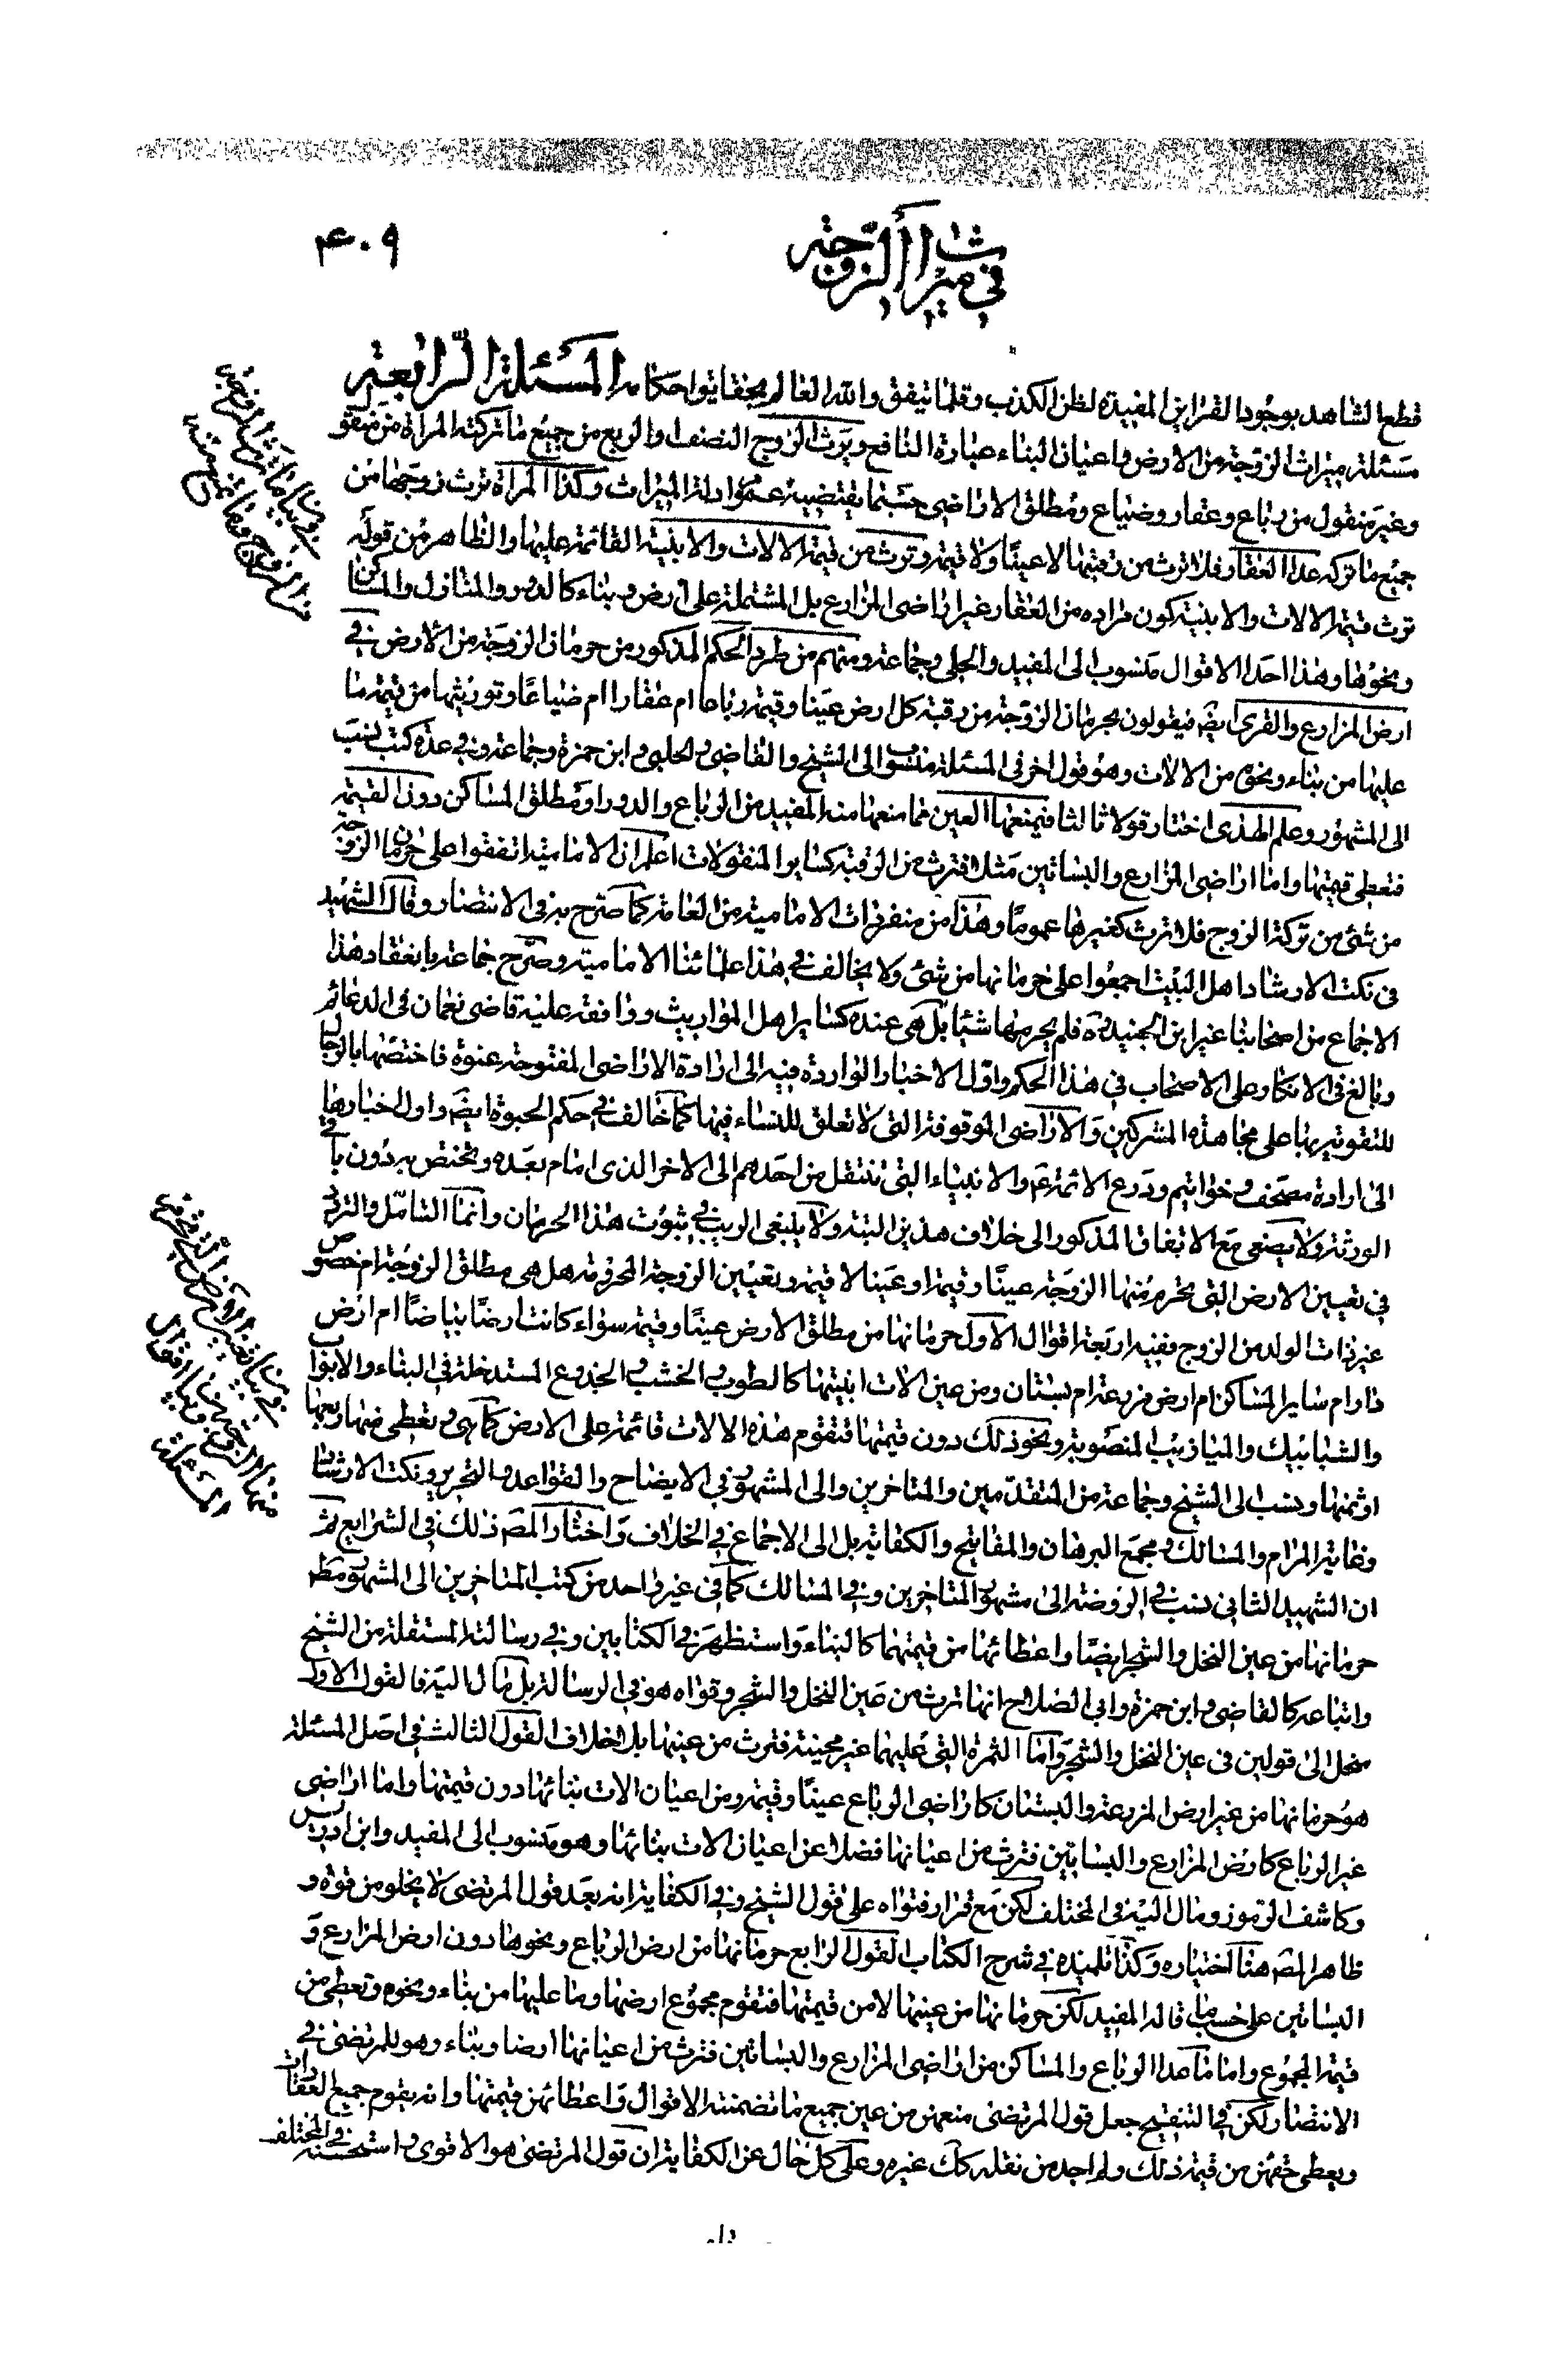 في ميراث الزوجة
۴۰۹
قطعا لشاهد بوجود القراين المفيدة لظن الكذب وقلما يتفق والله العالم بحقايق احكامه المسئلة الرابعة
مسئلة ميراث الزوجة من الارض واعيان البناء عبارة النافع ويرث الزوج النصف او الربع من جميع ما تركته المرأة من منقو
وغير منقول من رباع وعقار وضياع ومطلق الاراضي حسبما يقتضيه عموم ادلة الميراث وكذا المرأة ترث زوجها من
جميع ما تركه عدا العقار فلا ترث من رقبتها لا عينا ولا قيمة وترث من قيمة الالات والابنية القائمة عليها والظاهر من قوله
ترث قيمة الالات والابنية كون مراده من العقار غير اراضى المزارع بل المشتملة على ارض وبناء كالدور والمنازل والمساكن
ونحوها وهذا احد الاقوال منسوب الى المفيد والحلي وجماعة ومنهم من طرد الحكم المذكور من حرمان الزوجة من الارض في
ارض المزارع والقرى ايضَ فيقولون بحرمان الزوجة من رقبة كل ارض عينا وقيمة رباعا ام عقارا ام ضياعا وتوريثها من قيمة ما
عليها من بناء ونحوه من الالات وهو قول اخر في المسئلة منسوب الى الشيخ والقاضي والحلبي وابن حمزة وجماعة وفي عدة كتب نسب
الى المشهور وعلم الهدى اختار قولا ثالثا فيمنعها العين مما منعها منه المفيد من الرباع والدور ومطلق المساكن دون القيمة
فتعطى قيمتها واما اراضى المزارع والبساتين مثلا فترث من الرقبة كساير المنقولات اعلم ان الامامية اتفقوا على حرمان الزوجة
من شئ من تركة الزوج فلا ترث كغيرها عموما وهذا من منفردات الامامية من العامة كما صرح به في الانتصار وقال الشهيد
في نكت الارشاد اهل البيت اجمعوا على حرمانها من شئ ولا يخالف في هذا علمائنا الامامية وصرح جماعة بانعقاد هذا
الاجماع من اصحابنا غير ابن الجنيد ره فلم يحرمها شيئا بل هي عنده كساير اهل المواريث ووافقه عليه قاضي نعمان في الدعائم
وبالغ في الانكار على الاصحاب في هذا الحكم واول الاخبار الواردة فيه الى ارادة الاراضى المفتوحة عنوة فاختصها بالرجال
للتقوية بها على مجاهدة المشركين والاراضى الموقوفة التي لا تعلق للنساء فيها كما خالف في حكم الحبوة ايضَ واول اخبارها
الى ارادة مصحف وخواتيم ودرع الائمة ع والانبياء التي تنتقل من احدهم الى الاخر الذى امام بعده ويختص به دون باقي
الورثة ولا يصغى مع الاتفاق المذكور الى خلاف هذين البتة ولا ينبغى الريب في ثبوت هذا الحرمان وانما التامل والتردد
في تعيين الارض التي تحرم منها الزوجة عينا وقيمة او عينا لا قيمة وتعيين الزوجة المحرومة هل هي مطلق الزوجة ام خصوص
غير ذات الولد من الزوج ففيه اربعة اقوال الاول حرمانها من مطلق الارض عينا وقيمة سواء كانت ارضا بياضا ام ارض
دار ام ساير المساكن ام ارض مزرعة ام بستان ومن عين الات ابنيتها كالطوب والخشب والجذوع المستدخلة في البناء والابواب
والشبابيك والميازيب المنصوبة ونحو ذلك دون قيمتها فتقوم هذه الالات قائمة على الارض كما هي وتعطى منها ربعها
او ثمنها ونسب الى الشيخ وجماعة من المتقدمين والمتاخرين والى المشهور في الايضاح والقواعد والتحرير ونكت الارشاد
وغاية المرام والمسالك ومجمع البرهان والمفاتيح والكفاية بل الى الاجماع في الخلاف واختار المصَ ذلك في الشرايع ثم
ان الشهيد الثاني نسب في الروضة الى مشهور المتاخرين وفي المسالك كما في غير واحد من كتب المتاخرين الى المشهور مطَ
حرمانها من عين النخل والشجر ايضا واعطائها من قيمتهما كالبناء واستظهر في الكتابين وفي رسالته المستقلة من الشيخ
واتباعه كالقاضي وابن حمزة وابي الصلاح انها ترث من عين النخل والشجر وقواه هو في الرسالة بل مال اليه فالقول الاول
منحل الى قولين في عين النخل والشجر واما الثمرة التي عليهما غير مجنية فترث من عينها بلا خلاف القول الثالث في اصل المسئلة
هو حرمانها من غير ارض المزرعة والبستان كاراضى الرباع عينا وقيمة ومن اعيان الات بنائها دون قيمتها واما اراضى
غير الرباع كارض المزارع والبساتين فترث من اعيانها فضلا عن اعيان الات بنائها وهو منسوب الى المفيد وابن ادريس
وكاشف الرموز ومال اليه في المختلف لكن مع قرار فتواه على قول الشيخ وفي الكفاية انه بعد قول المرتضى لا يخلو من قوة و
ظاهر المصَ هنا اختياره وكذا تلميذه في شرح الكتاب القول الرابع حرمانها من ارض الرباع ونحوها دون ارض المزارع و
البساتين على حسب ما قاله المفيد لكن حرمانها من عينها لا من قيمتها فتقوم مجموع ارضها وما عليها من بناء ونحوه وتعطى من
قيمة المجموع واما ما عدا الرباع والمساكن من اراضى المزارع والبساتين فترث من اعيانها ارضا وبناء وهو للمرتضى في
الانتصار ولكن في التنقيح جعل قول المرتضى منعهن من عين جميع ما تضمنته الاقوال واعطائهن قيمتها وانه يقوم جميع العقارات
ويعطى حقهن من قيمة ذلك ولم اجد من نقله كك غيره وعلى كل حال عن الكفاية ان قول المرتضى هو الاقوى واستحسنه في المختلف